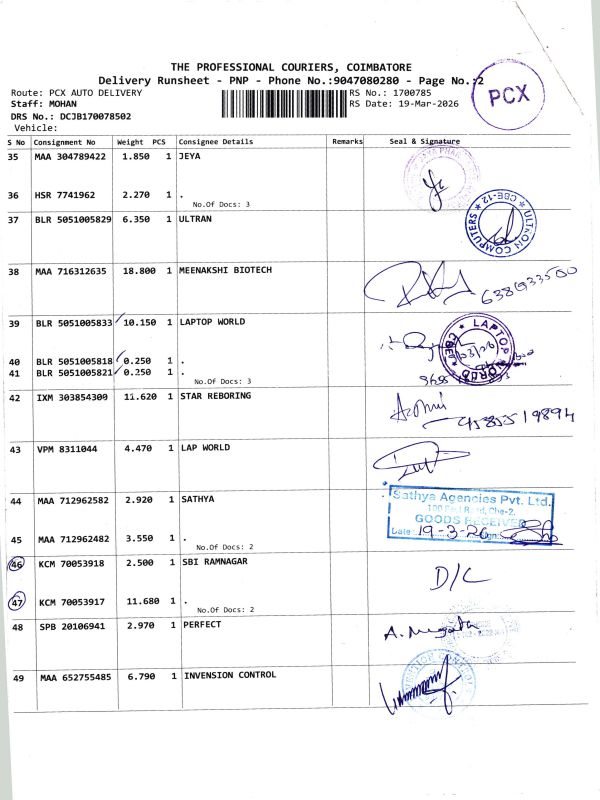 THE PROFESSIONAL COURIERS, COIMBATORE
Delivery Runsheet - PNP - Phone No.:9047080280 - Page No.:2
Route: PCX AUTO DELIVERY
RS No.: 1700785
Staff: MOHAN
RS Date: 19-Mar-2026
PCX
DRS No.: DCJB170078502
Vehicle:
S No Consignment No Weight PCS Consignee Details Remarks Seal & Signature
35 MAA 304789422 1.850 1 JEYA
36 HSR 7741962 2.270 1 .
No.Of Docs: 3
37 BLR 5051005829 6.350 1 ULTRAN
ULTRON COMPUTERS CBE-12
38 MAA 716312635 18.800 1 MEENAKSHI BIOTECH
39 BLR 5051005833 10.150 1 LAPTOP WORLD
LAPTOP WORLD
40 BLR 5051005818 0.250 1 .
41 BLR 5051005821 0.250 1 .
No.Of Docs: 3
42 IXM 303854309 11.620 1 STAR REBORING
43 VPM 8311044 4.470 1 LAP WORLD
44 MAA 712962582 2.920 1 SATHYA
Sathya Agencies Pvt. Ltd.
Road, Cbe-2.
GOODS RECEIVED
Date: 19-3-26 Sign:
45 MAA 712962482 3.550 1 .
No.Of Docs: 2
46 KCM 70053918 2.500 1 SBI RAMNAGAR
D/C
47 KCM 70053917 11.680 1 .
No.Of Docs: 2
48 SPB 20106941 2.970 1 PERFECT
49 MAA 652755485 6.790 1 INVENSION CONTROL